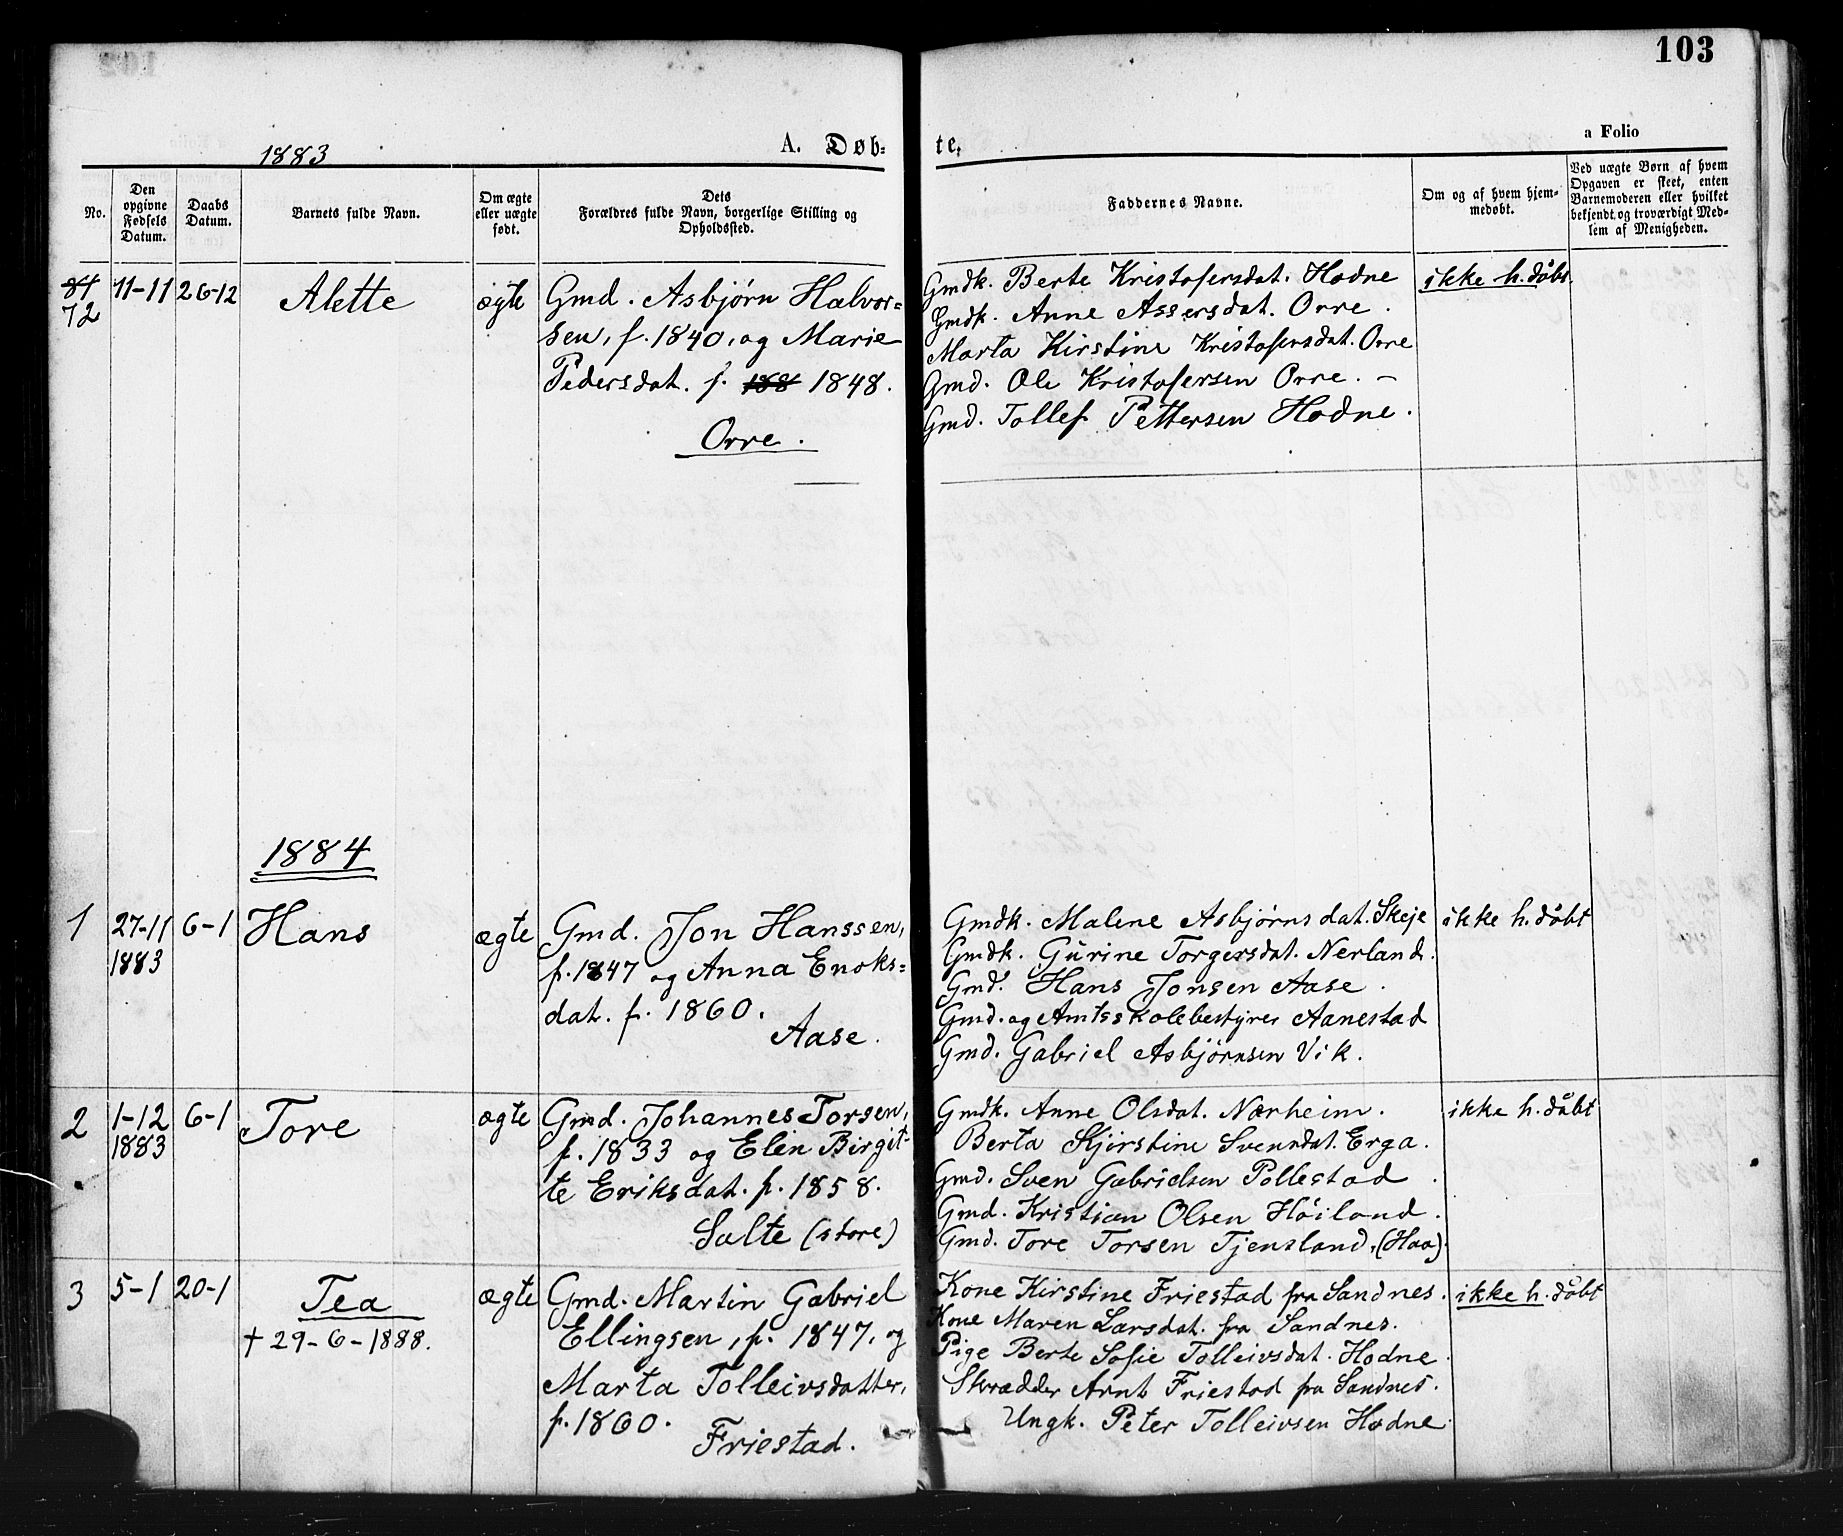 103
a Folio
1883
A. Døb- te.
No.
Den opgivne Fødsels Datum.
Daabs Datum.
Barnets fulde Navn.
Om ægte eller uægte født.
Dets Forældres fulde Navn, borgerlige Stilling og Opholdssted.
Faddernes Navne.
Om og af hvem hjem-
medøbt.
Ved uægte Børn af hvem
Opgaven er skeet, enten
Barnemoderen eller hvilket
bekjendt og troværdigt Med-
lem af Menigheden.
72
11-11
26-12
Alette
ægte
Gmd. Asbjørn Halvor=
sen, f. 1840, og Marie
Pedersdat. f. 188 1848.
Orre.
Gmdk. Berte Kristofersdat. Hodne
Gmdk. Anne Assersdat. Orre.
Marta Kirstine Kristofersdat. Orre
Gmd. Ole Kristofersen Orre. -
Gmd. Tollef Pettersen Hodne.
ikke h. døbt.
1884
1
27-11
1883
6-1
Hans
ægte
Gmd. Jon Hanssen,
f. 1847 og Anna Enoks=
dat. f. 1860.
Aase.
Gmdk. Malene Asbjørnsdat. Skeje
Gmdk. Gurine Torgersdat. Nerland.
Gmd. Hans Jonsen Aase.
Gmd. og Amtsskolebestyrer Aanestad
Gmd. Gabriel Asbjørnsen Vik.
ikke h. døbt
2
1-12
1883
6-1
Tore
ægte
Gmd. Johannes Torsen,
f. 1833 og Elen Birgit-
te Eriksdat. f. 1858.
Salte (store)
Gmdk. Anne Olsdat. Nærheim.
Berta Kjirstine Svensdat. Erga.
Gmd. Sven Gabrielsen Pollestad.
Gmd. Kristian Olsen Høiland.
Gmd. Tore Torsen Tjensland, (Haa).
ikke h. døbt
3
5-1
20-1
Tea
† 29-6-1888.
ægte
Gmd. Martin Gabriel
Ellingsen, f. 1847, og
Marta Tolleivsdatter,
f. 1860.
Friestad.
Kone Kirstine Friestad fra Sandnes.
Kone Maren Larsdat. fra Sandnes.
Pige Berte Sofie Tolleivsdat. Hodne.
Skrædder Arnt Friestad fra Sandnes.
Ungk. Peter Tolleivsen Hodne
ikke h. døbt